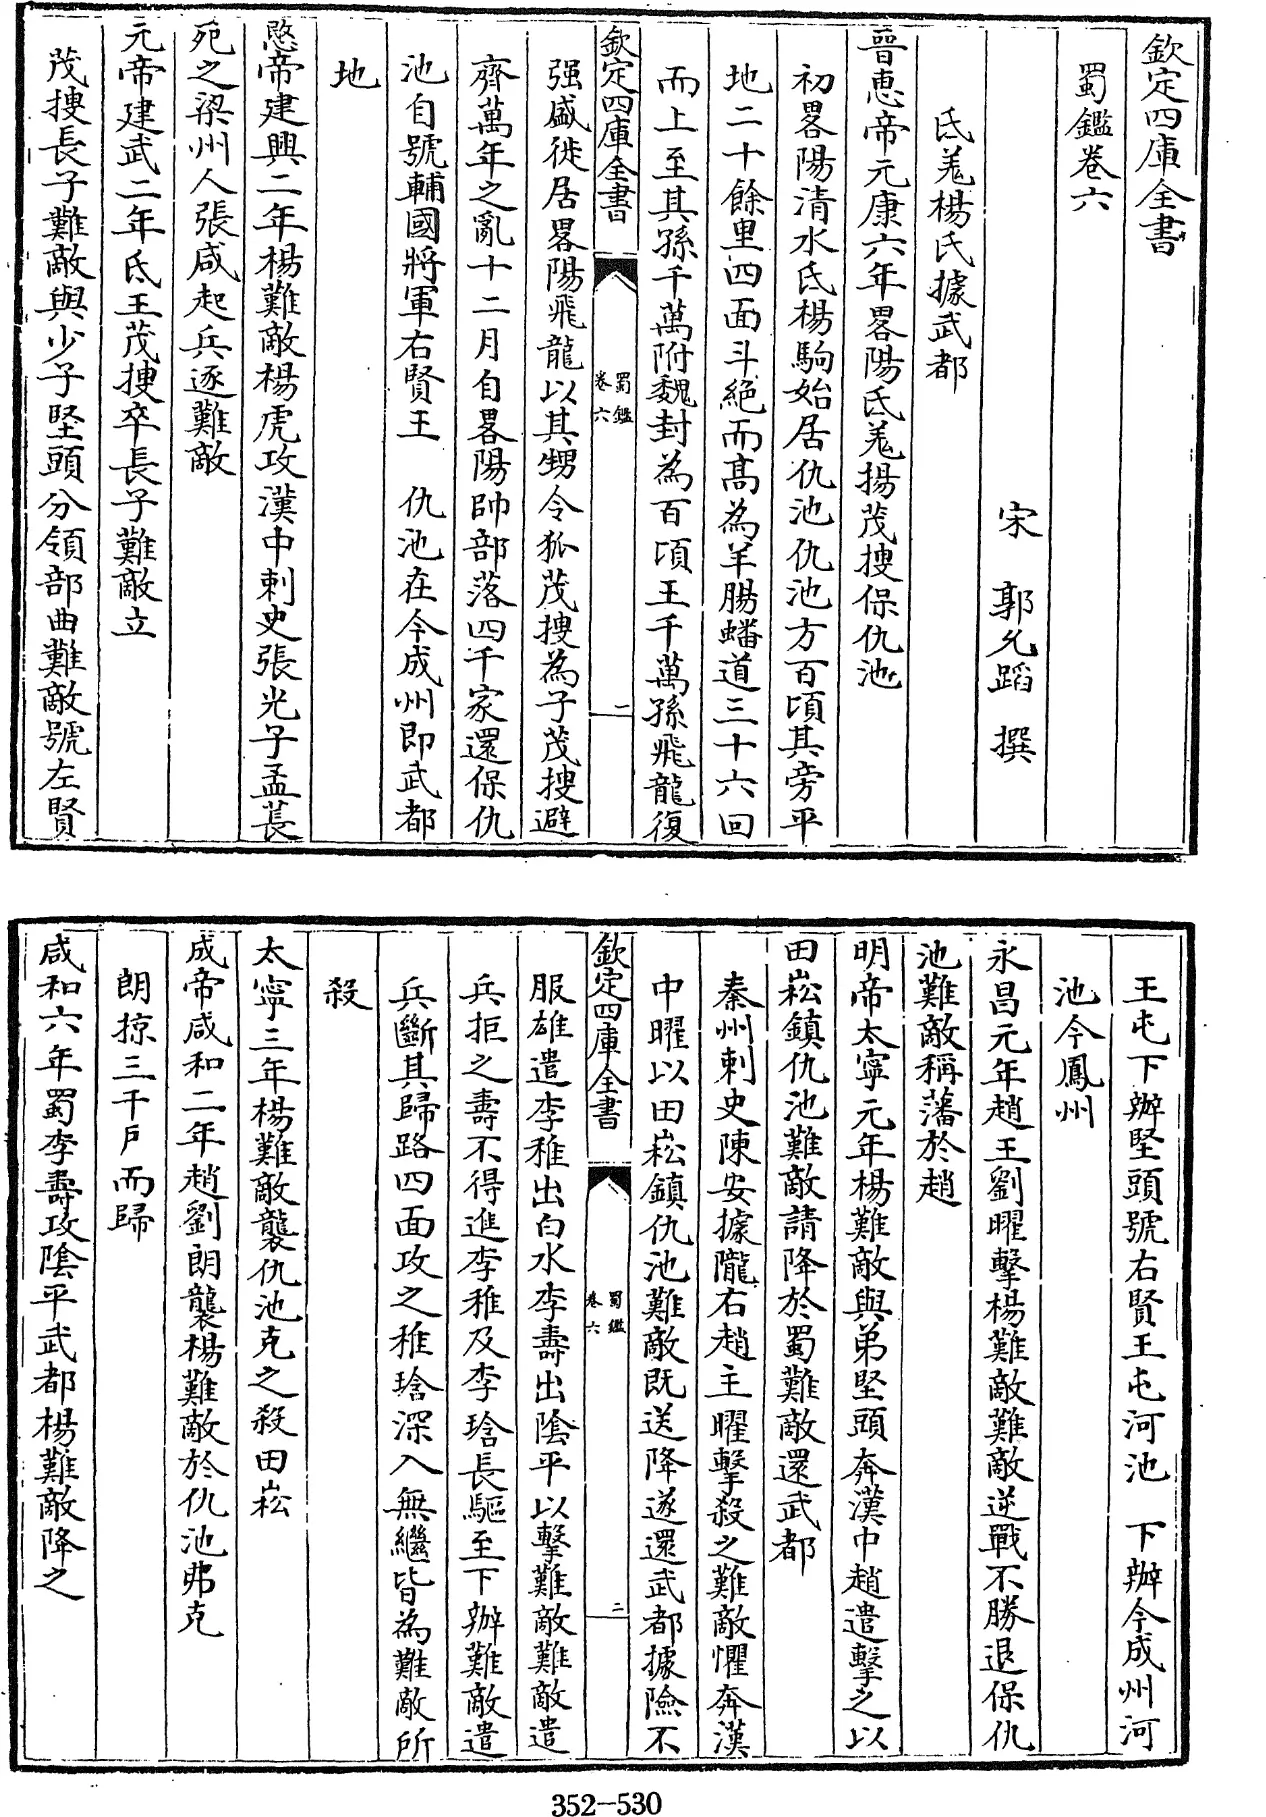 欽定四庫全書
蜀鑑卷六
宋　郭允蹈　撰
氐羌楊氏據武都
晉惠帝元康六年畧陽氐羌揚茂搜保仇池
初畧陽清水氐楊駒始居仇池仇池方百頃其旁平
地二十餘里四面斗絕而髙為羊腸蟠道三十六回
而上至其孫千萬附魏封為百頃王千萬孫飛龍復
欽定四庫全書
蜀鑑
卷六
一
强盛徙居畧陽飛龍以其甥令狐茂搜為子茂搜避
齊萬年之亂十二月自畧陽帥部落四千家還保仇
池自號輔國將軍右賢王　仇池在今成州即武都
地
愍帝建興二年楊難敵楊虎攻漢中刺史張光子孟萇
死之梁州人張咸起兵逐難敵
元帝建武二年氐王茂搜卒長子難敵立
茂搜長子難敵與少子堅頭分領部曲難敵號左賢
王屯下辦堅頭號右賢王屯河池　下辦今成州河
池今鳳州
永昌元年趙王劉曜擊楊難敵難敵逆戰不勝退保仇
池難敵稱藩於趙
明帝太寧元年楊難敵與弟堅頭奔漢中趙遣擊之以
田崧鎮仇池難敵請降於蜀難敵還武都
秦州刺史陳安據隴右趙主曜擊殺之難敵懼奔漢
中曜以田崧鎮仇池難敵既送降遂還武都據險不
欽定四庫全書
蜀鑑
卷六
二
服雄遣李稚出白水李壽出陰平以擊難敵難敵遣
兵拒之壽不得進李稚及李琀長驅至下辦難敵遣
兵斷其歸路四面攻之稚琀深入無繼皆為難敵所
殺
太寧三年楊難敵襲仇池克之殺田崧
成帝咸和二年趙劉朗襲楊難敵於仇池弗克
朗掠三千戶而歸
咸和六年蜀李壽攻陰平武都楊難敵降之
352—530